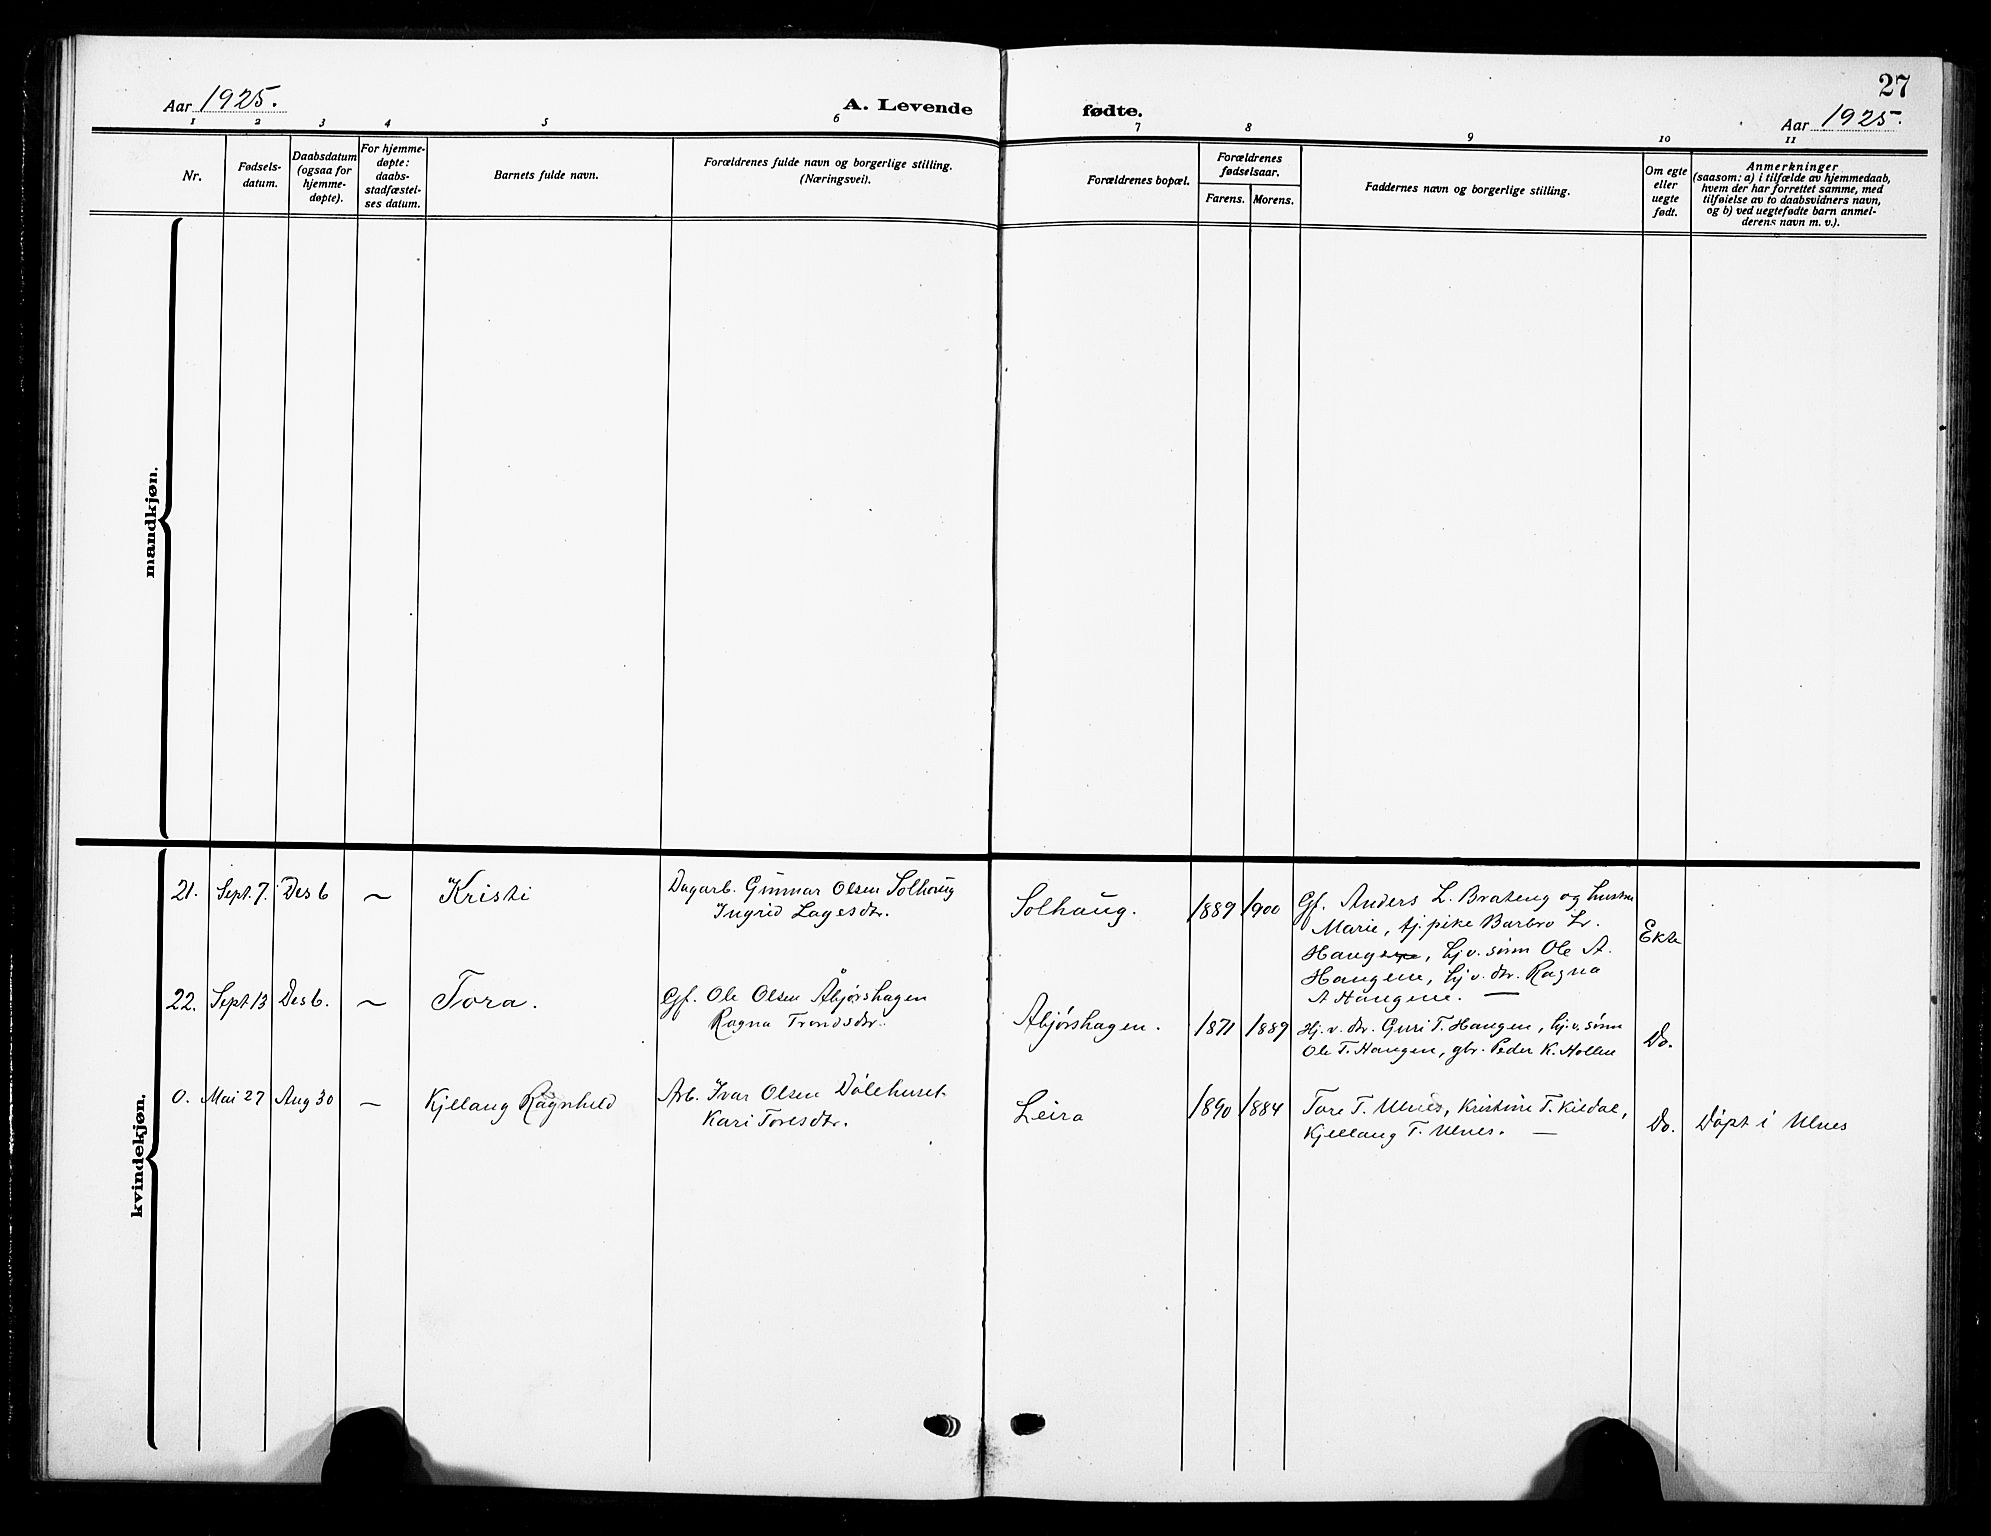 27
Aar 1925.
A. Levende fødte.
Aar 1925.
1 2 3 4 5 6 7 8 9 10 11
Nr.
Fødsels-
datum.
Daabsdatum
(ogsaa for
hjemme-
døpte).
For hjemme-
døpte:
daabs-
stadfæstel-
ses datum.
Barnets fulde navn.
Forældrenes fulde navn og borgerlige stilling.
(Næringsvei).
Forældrenes bopæl.
Forældrenes
fødselsaar.
Farens. Morens.
Faddernes navn og borgerlige stilling.
Om egte
eller
uegte
født.
Anmerkninger
(saasom: a) i tilfælde av hjemmedaab,
hvem der har forrettet samme, med
tilføielse av to daabsvidners navn,
og b) ved uegtefødte barn anmel-
derens navn m. v.).
mandkjøn.
kvindekjøn.
21. Sept. 7. Des 6 — Kristi
Dagarb. Gunnar Olsen Solhaug
Ingrid Lagesdtr.
Solhaug. 1889 1900
Gf. Anders L. Brateng og hustru
Marie, tj. pike Barbro Lr.
Haugene, hj. v. sønn Ole A.
Haugene, hj v. dtr. Ragna
A Haugene. —
Ekte
22. Sept 13 Des 6. — Tora.
Gf. Ole Olsen Åbjørshagen
Ragna Trondsdtr.
Abjørshagen. 1871 1889
Hj. v. dtr. Guri T. Haugen, hj. v. sønn
Ole T. Haugen, gbr. Peder K. Hollen
Do.
0. Mai 27 Aug 30 — Kjellaug Ragnhild
Arb. Ivar Olsen Dölehuset
Kari Toresdtr.
Leira 1890 1884
Tore T. Ulnes, Kristine T. Kildal,
Kjellaug T. Ulnes. —
Do. Döpt i Ulnes